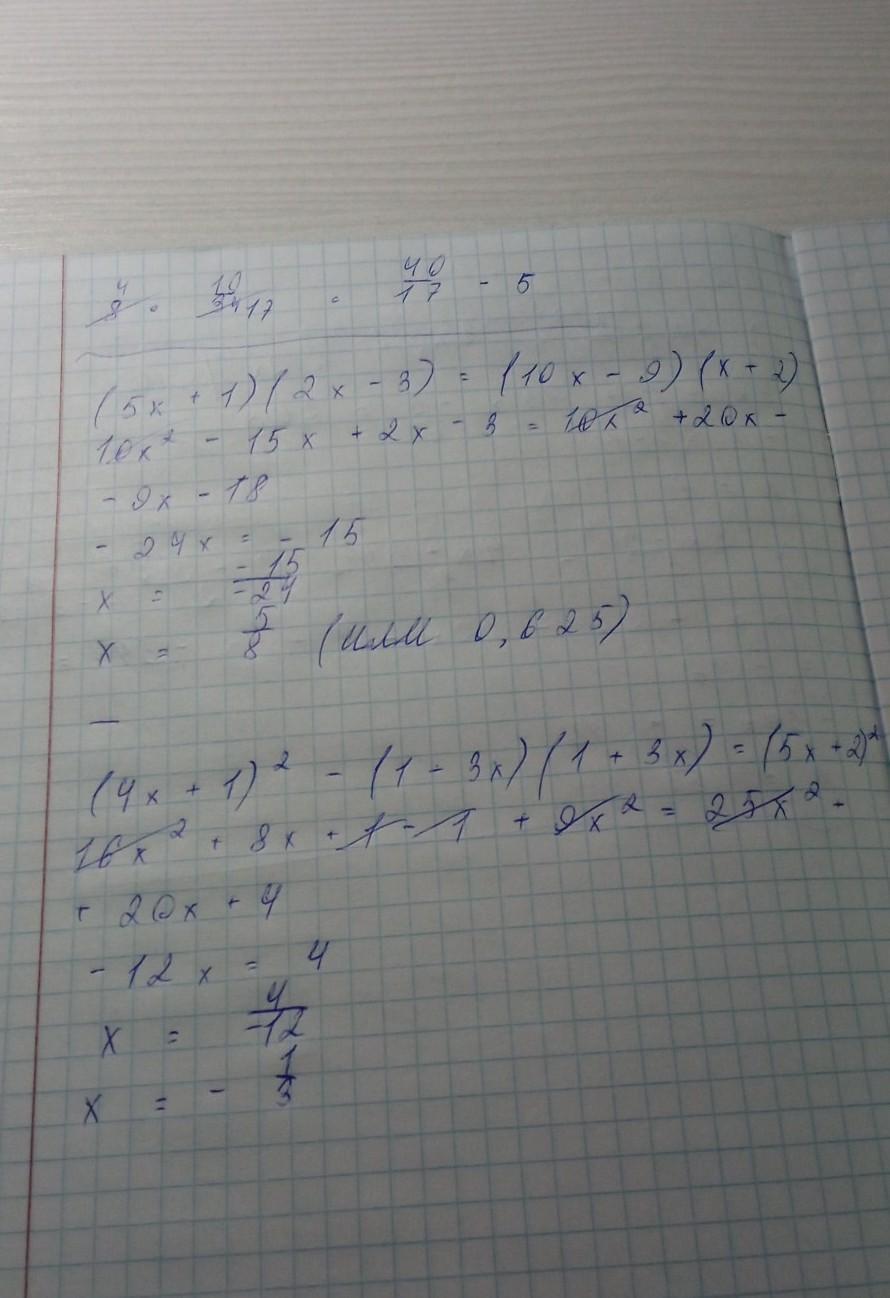 4 10 40
8 · 34 17 · 17 - 5
(5x + 1)(2x - 3) = (10x - 9)(x + 2)
10x² - 15x + 2x - 3 = 10x² + 20x -
- 9x - 18
- 24x = - 15
x = -15/-24
x = 5/8 (или 0,625)
—
(4x + 1)² - (1 - 3x)(1 + 3x) = (5x + 2)²
16x² + 8x + 1 - 1 + 9x² = 25x² +
+ 20x + 4
- 12x = 4
x = 4/-12
x = - 1/3